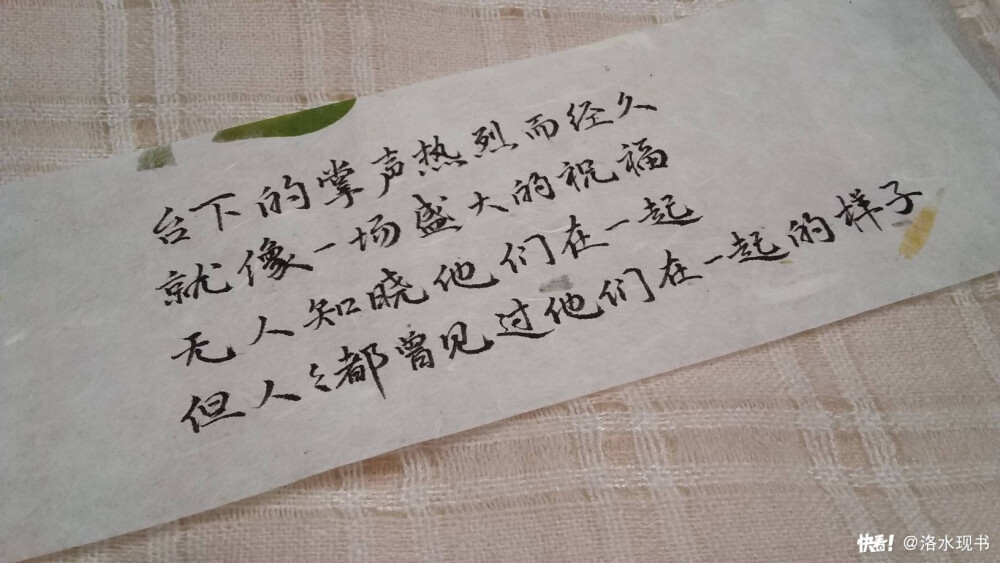 台下的掌声热烈而经久
就像一场盛大的祝福
无人知晓他们在一起
但人々都曾见过他们在一起的样子
快看！@洛水现书